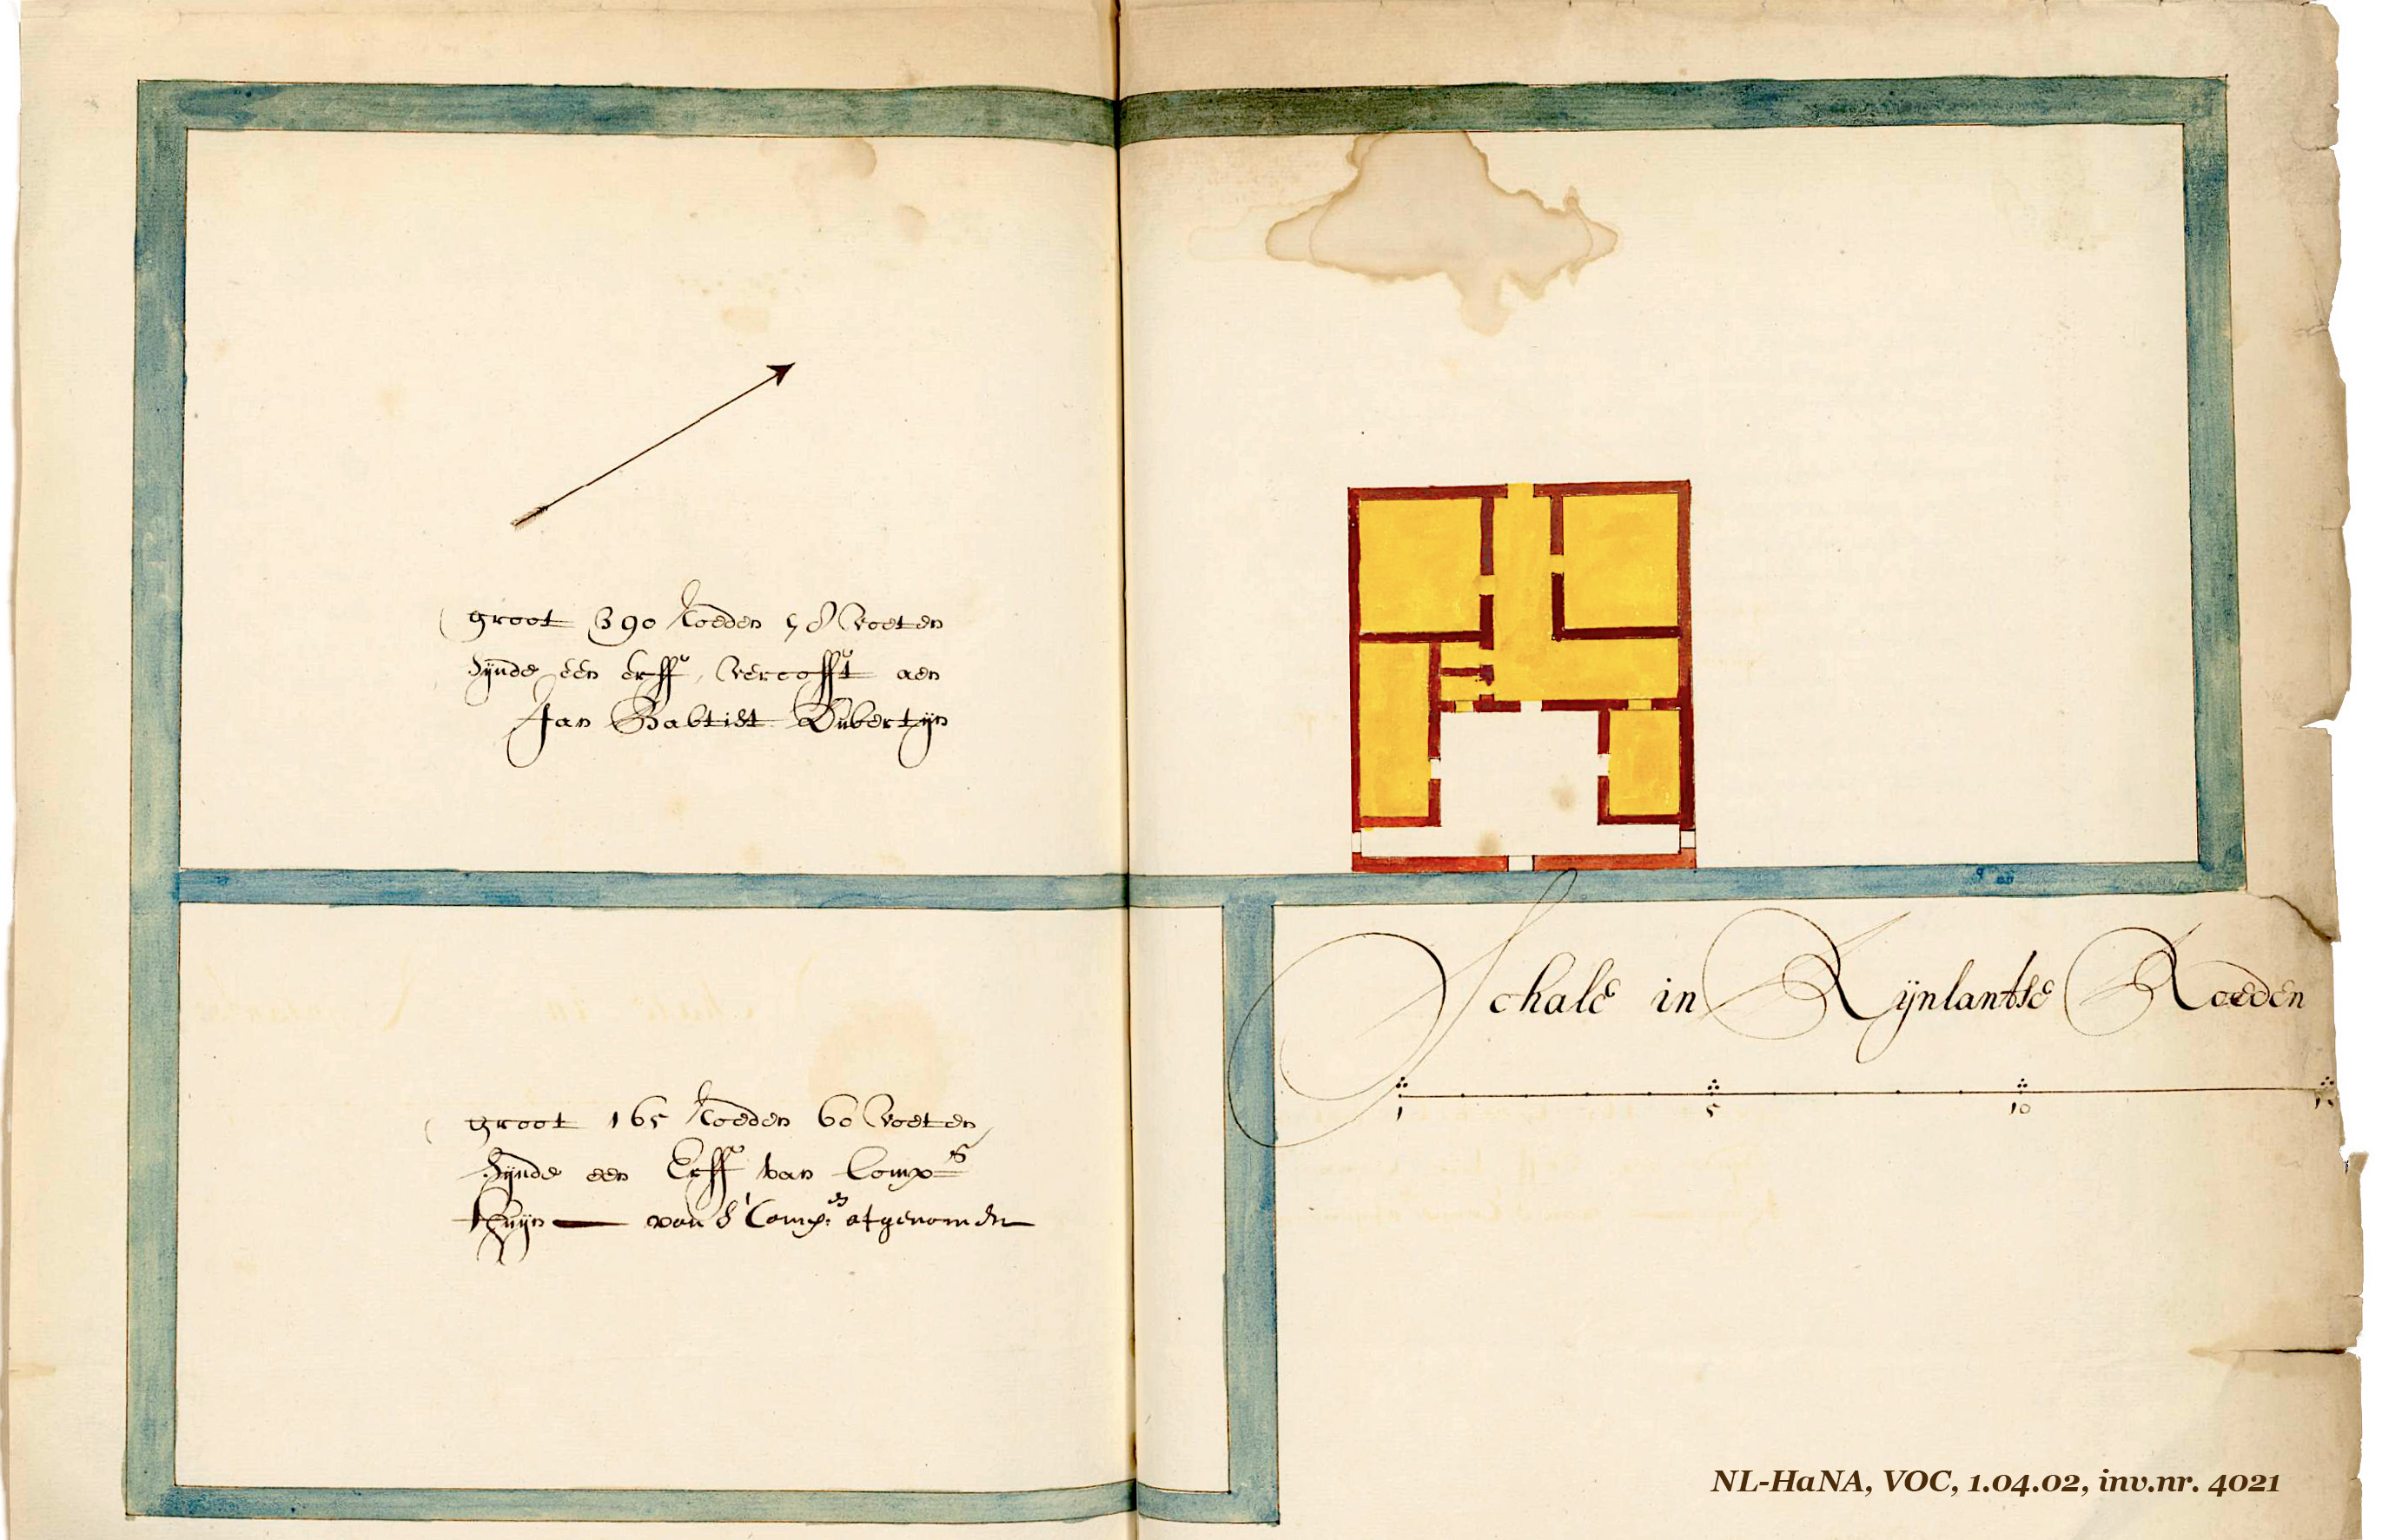 groot 390 Roeden 58 Voeten
Zijnde een erff, Vercofft aen
Jan Babtist Dubertijn
groot 165 Roeden 60 Voeten
Zijnde een Erff van Comp.s
Thuijn — van d'Comp: afgenomen
Schale in Rijnlantse Roeden
1 5 10 15
NL-HaNA, VOC, 1.04.02, inv.nr. 4021